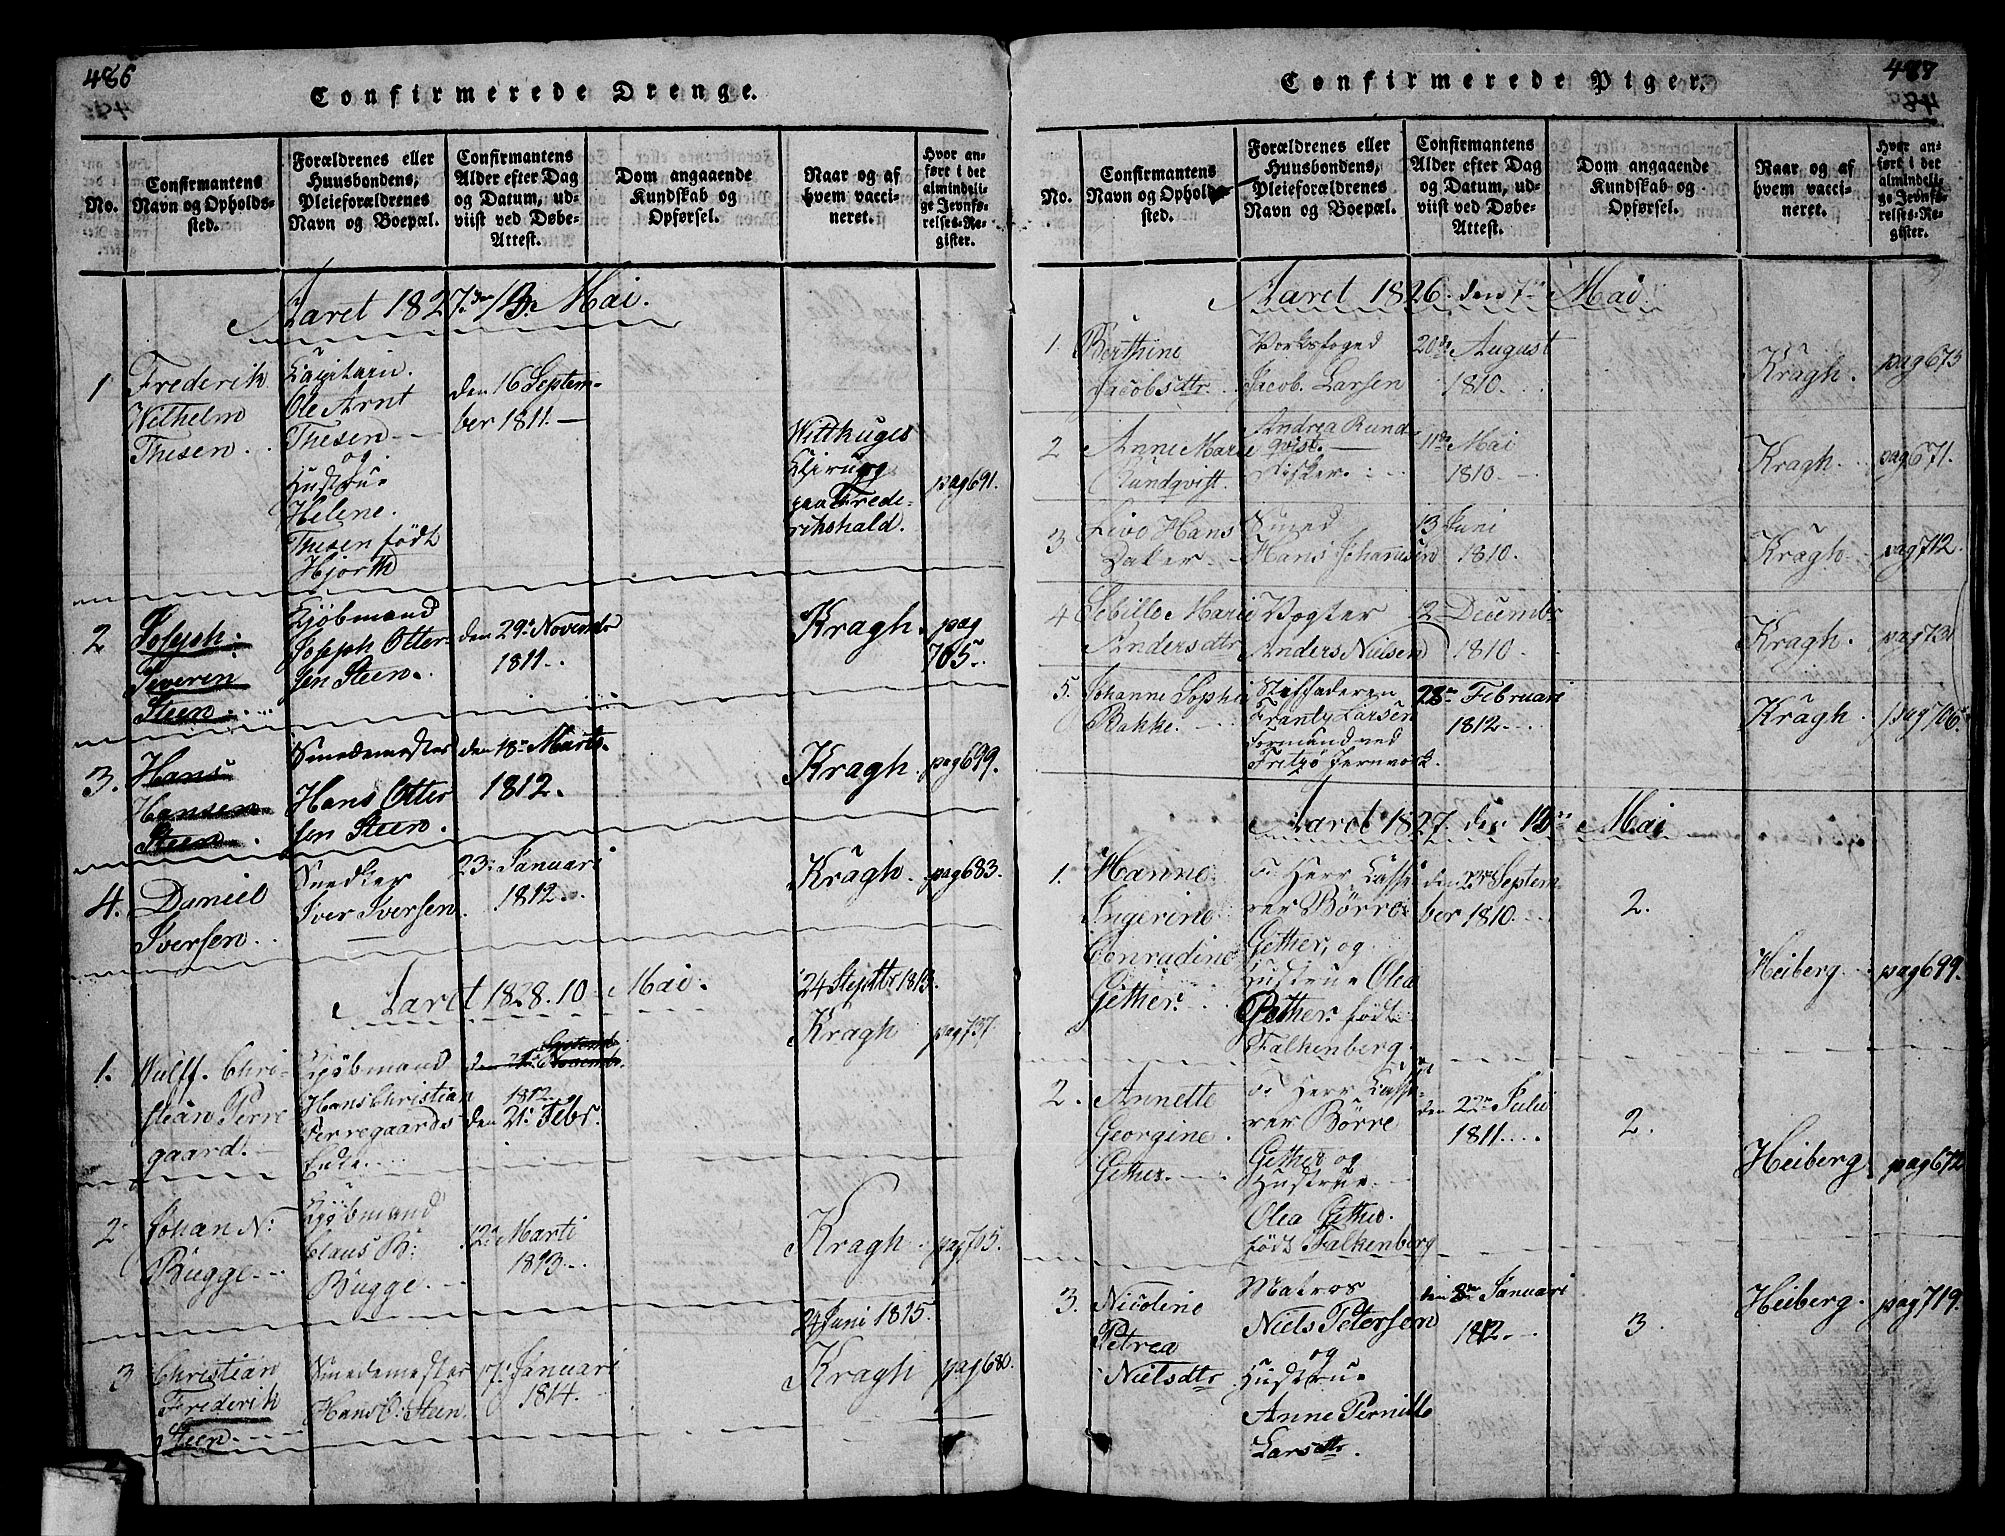 486
Confirmerede Drenge.
No.
Confirmantens
Navn og Opholds-
sted.
Forældrenes eller
Huusbondens,
Pleieforældrenes
Navn og Boepæl.
Confirmantens
Alder efter Dag
og Datum, ud-
viist ved Døbe-
Attest.
Dom angaaende
Kundskab og
Opførsel.
Naar og af
hvem vacci-
neret.
Hvor an-
ført i det
almindeli-
ge Jevnfø-
relses-Re-
gister.
Aaret 1827. den 13. Mai.
1
Frederik
Wilhelm
Thesen
Capitain
Ole Arnt
Thesen
og
Hustrue
Helene
Thesen født
Hjorth
den 16 Septem-
ber 1811.
Chirurg
paa Frede-
rikshald.
pag 691.
2
Joseph
Severin
Steen
Kjøbmand
Joseph Otter-
sen Steen.
den 29. Novembr
1811.
Kragh.
pag
705.
3.
Hans
Hansen
Steen
Smedemester
Hans Otter
sen Steen.
den 18 Marts.
1812.
Kragh
pag 699.
4.
Daniel
Iversen
Snedker
Iver Iversen.
23. Januari
1812.
Kragh.
pag 683.
Aaret 1828. 10 Mai.
1.
Wulff. Chri-
stian Ferre
gaard.
Kjøbmand
Hans Christian
Ferregaards
den 21. Novembr.
Septemb
1812
den 21. Febr.
24 Septbr 1813.
Kragh
pag 737.
2
Johan N:
Bugge
Kjøbmand
Claus B:
Bugge
12. Marti
1813.
Kragh
pag 705.
3
Christian
Frederik
Steen
Smedemester
Hans O. Steen.
17. Januari
1814.
24 Juni 1815.
Kragh
pag 680.
487
Confirmerede Piger.
No.
Confirmantens
Navn og Opholds-
sted.
Forældrenes eller
Huusbondens,
Pleieforældrenes
Navn og Boepæl.
Confirmantens
Alder efter Dag
og Datum, ud-
viist ved Døbe-
Attest.
Dom angaaende
Kundskab og
Opførsel.
Naar og af
hvem vacci-
neret.
Hvor an-
ført i det
almindeli-
ge Jevnfø-
relses-Re-
gister.
Aaret 1826. den 7. Mai
1.
Berthine
Jacobsdtr.
Jacob Larsen
20de August
1810.
Kragh.
pag 673
2
Anne Marie
Rundqvist.
Andrea Rund-
qvist.
11te Mai
1810.
Kragh.
pag 671.
3
Smed
Hans Johansen
13 Juni
1810.
Kragh.
pag 712.
4
Sebille Marie
Andersdtr
Vogter
Anders Nielsen
2 Decembr
1810.
Kragh.
pag 73
5.
Johanne Sophie
Bakke.
Stiffaderen
Frantz Larsen
Formand ved
Fritzø Jernverk.
28 Februari
1812.
Kragh.
pag 706
Aaret 1827. den 13. Mai
1.
Hanne
Ingerine
Conradine
Gether.
Herr Casse
rer Børre
Gether, og
Hustrue Olea
Gether født
Falkenberg.
den 23 Septem-
ber 1810.
2.
Heiberg.
pag 699.
2.
Annette
Georgine
Gether.
Herr Casse-
rer Børre
Gether og
Hustrue
Olea Gether
født Falkenberg
den 22 Juli
1811.
2.
Heiberg.
pag 672
3.
Nicoline
Petrea
Nielsdtr
Matros
Niels Petersen
og
Hustrue
Anne Pernille
Larsdtr.
den 8 Januari
1812.
3.
Heiberg.
pag 719.